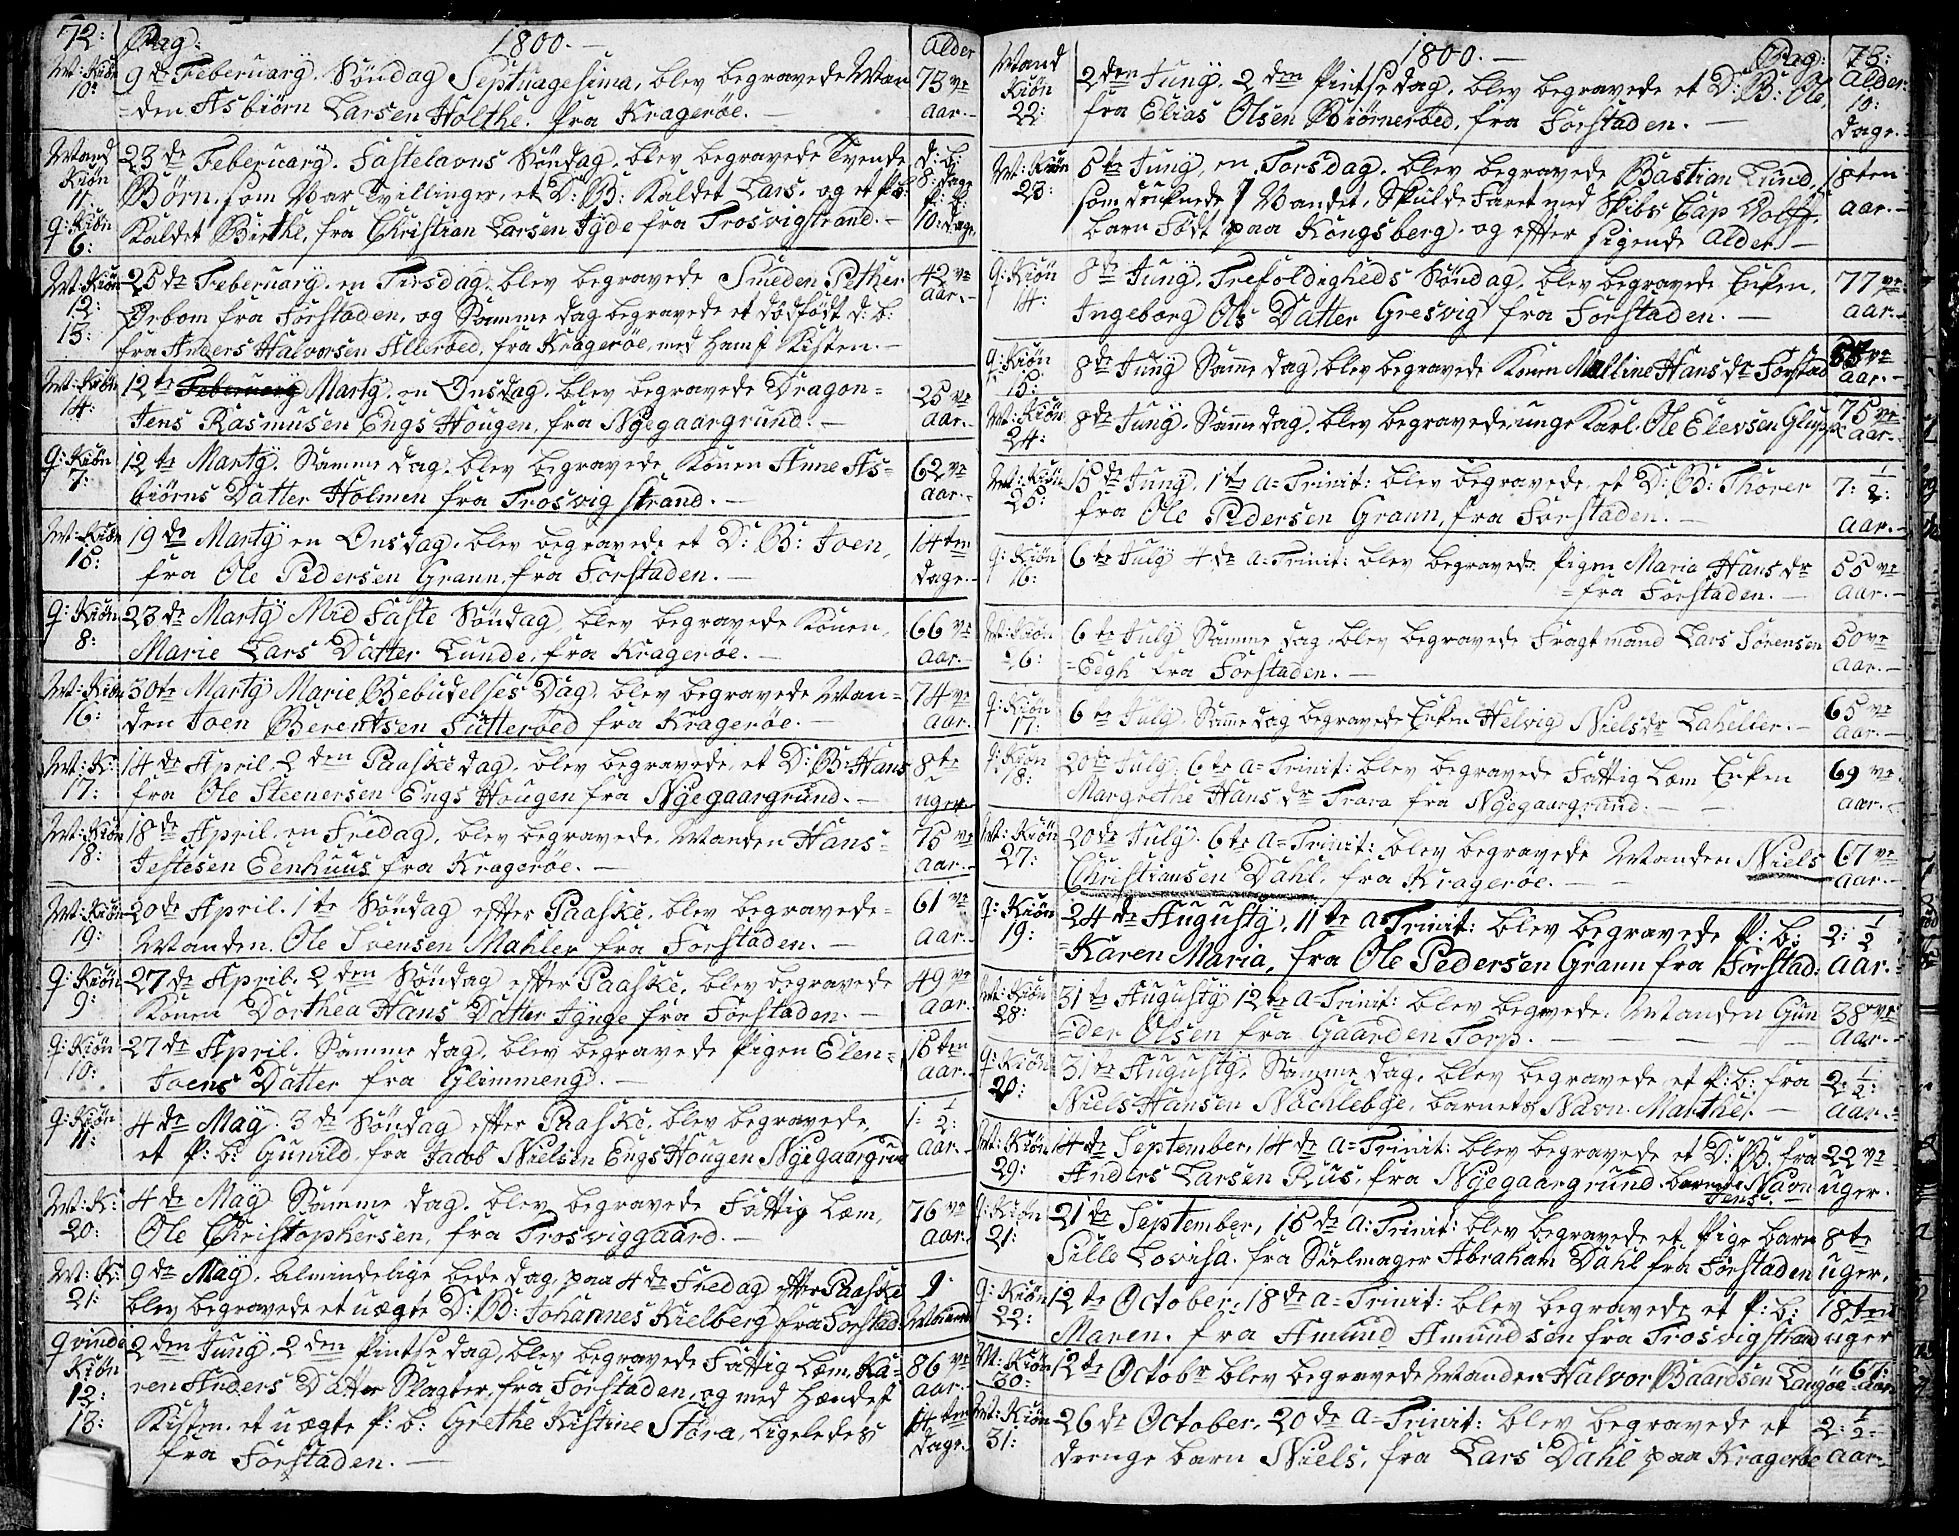 72: Pag: 1800.- Alder
M: Kiøn 10: 9de Februarÿ. Søndag Septuagesima, blev begravede Man 73ve
=den Asbiørn Larsen Holthe. fra Kragerøe.- aar.-
Mand Kiøn 11: 23de Februarÿ. Fastelavns Søndag, blev begravede Tvende d: b: 8: dage
Børn. som Var Tvillinger, et D: B: Kaldet Lars. og et P: b: p: b:
q: Kiøn 6: Kaldet Birthe, fra Christian Larsen Tÿde fra Trosvigstrand.- 10: dage
M: Kiøn 12: 25de Februarÿ. en Tirsdag, blev begravede Smeden Pether 42ve aar.-
Ørbom fra Forstaden, og Samme dag begravede et dødfødt d: b:
13: fra Anders Halvorsen Allerbed, fra Kragerøe, med Hans Kisten.-
M: Kiøn 14: 12te Martÿ. en Onsdag, blev begravede Dragon= 25ve
Jens Rasmusen Engs Hougen, fra Nÿegaargrund.- aar.-
q: Kiøn 7: 12te Martÿ. Samme dag. blev begravede Konen Anne As= 62ve
biørns Datter Holmen fra Trosvig strand.- aar.-
M: Kiøn 15: 19de Martÿ en Onsdag. blev begravede et D: B: Joen, 14ten
fra Ole Pedersen Grann, fra Forstaden.- dage.-
q: Kiøn 8: 23de Martÿ Mid Faste Søndag, blev begravede Konen, 66ve
Marie Lars Datter Lunde, fra Kragerøe.- aar.-
M: Kiøn 16: 30te Martÿ Marie Bebudelses Dag. blev begravede Man= 74ve
den Joen Berentsen Futterbed fra Kragerøe. aar.
M: K: 17: 14de April. 2den Paaske dag. blev begravede, et D: B: Hans 8te
fra Ole Steenersen Engs Hougen fra Nÿegaargrund.- uger.
M: Kiøn 18: 18de April. en Fredag, blev begravede. Manden Hans= 75ve
Jestesen Eenhuus fra Kragerøe.- aar.-
M: Kiøn 19: 20de April. 1te Søndag effter Paaske. blev begravede= 61ve
Manden. Ole Svensen Mahler fra Forstaden.- aar.-
q: Kiøn 9: 27de April. 2den Søndag effter Paaske, blev begravede 49ve
Konen Dorthea Hans Datter Tÿnge fra Forstaden.- aar.
q: Kiøn 10: 27de April. Samme dag, blev begravede Pigen Elen= 16ten
Joens Datter fra Glimmeng.- aar.-
q: Kiøn 11: 4de Maÿ. 3de Søndag effter Paaske. blev begravede, 1: 1/2:
et P: b: Gunild, fra Jacob Nielsen Engs Hougen Nÿegaargrun aar.-
M: K: 20: 4de Maÿ Samme dag. blev begravede Fattig Lem, 76ve
Ole Christophersen, fra Trosviggaard.- aar.-
M: K: 21: 9de Maÿ. almindelige bede dag, paa 4de Fredag effter Paaske 9:
blev begravede et uægte D: B: Johannes Kielberg fra Forstad: Maaned
qvinde Kiøn 12: 2den Junÿ. 2den Pintse dag, blev begravede Fattig Lem, Ka= 86ve
ren Anders Datter Slagter, fra Forstaden, og med Hændes aar.-
13: Kisten. et uægte P: b: Grethe Kistine Støra, Ligeledes 14ten
fra Forstaden.- dage.-
1800.- Pag: 73:
Mand Kiøn 22: 2den Junÿ. 2den Pintse dag, blev begravede et D: B: Ole, Alder: 10:
fra Elias Olsen Biørnerbed, fra Forstaden.- dage.-
M: Kiøn 23: 5te Junÿ, en Torsdag, blev begravede Bastian Lund, 18ten
som druknede i Vandet, Skulde Faret med Skibs Cap Wolff, aar.-
barn Født paa Kongsberg. og effter sigende Alder.-
q: Kiøn 14: 8de Junÿ, Trefoldigheds Søndag, blev begravede Enken, 77ve
Ingeborg Ols Datter Gresvig fra Forstaden.- aar.-
q: Kiøn 15: 8de Junÿ Same dag, blev begravede Konen Malline Hans dr Forstad aar.-
M: Kiøn 24: 8de Junÿ. Same dag. blev begravede, unge Karl. Ole Elevsen Glup 75ve aar.-
M: Kiøn 25: 15de Junÿ, 1te a= Trinit: blev begravede, et D: B: Thorer 7: 1/2:
fra Ole Pedersen Grann, fra Forstaden.- aar.-
q: Kiøn 16: 6te Julÿ 4de a= Trinit: blev begravede Pigen Maria Hans dr 55ve
=fra Forstaden.- aar.-
M: Kiøn 26: 6te Julÿ Samme dag, blev begravede Fragtmand Lars Sørensen 50ve
=Eegh fra Forstaden.- aar.-
q: Kiøn 17: 6te Julÿ. Same dag begravede Enken Helvig Niels dr Lahelter.- 65ve aar.-
q: Kiøn 18: 20de Julÿ, 6te a= Trinit: blev begravede Fattig Lem Enken 69ve
Margrethe Hans dr Trara fra Nÿegaargrund.- aar.-
M: Kiøn 27: 20de Julÿ. 6te a= Trinit: blev begravede Manden Niels 67ve
Christiansen Dahl, fra Kragerøe.- aar.-
q: Kiøn 19: 24de Augustÿ, 11te a= Trinit: blev begravede P: b: 2: 1/2
=Karen Maria, fra Ole Pedersen Grann fra Forstad: aar.-
M: Kiøn 28: 31te Augustÿ 12te a= Trinit: blev begravede. Manden Gun 38ve
=der Olsen fra Gaarden Torp.- aar.-
q: Kiøn 20: 31te Augustÿ. Samme dag, blev begravede et P: b: fra 2: 1/2:
Niels Hansen Nøcklebÿe, barnets Navn. Marthe.- aar.-
M: Kiøn 29: 14de September, 14de a= Trinit: blev begravede et D: B: fra 22ve
Anders Larsen Rus, fra Nÿegaargrund. barnets Navn uger.
Jens.
q: Kiøn 21: 21de September, 15de a: Trinit: blev begravede et Pige barn 8te
Sille Lovisa. fra Siilmager Abraham Dahl fra Forstaden uger.
q: Kiøn 22: 12te October, 18de a= Trinit: blev begravede et P: b: 18ten
Maren. fra Amund Amundsen fra Trosvigstrand uger
M: Kiøn 30: 12te Octobr blev begravede Manden Halvor Baardsen Langøe 67: aar
M: Kiøn 31: 26de October. 20de a= Trinit: blev begravede et 2: 1/2=
drenge barn Niels, fra Lars Dahl paa Kragerøe aar.-